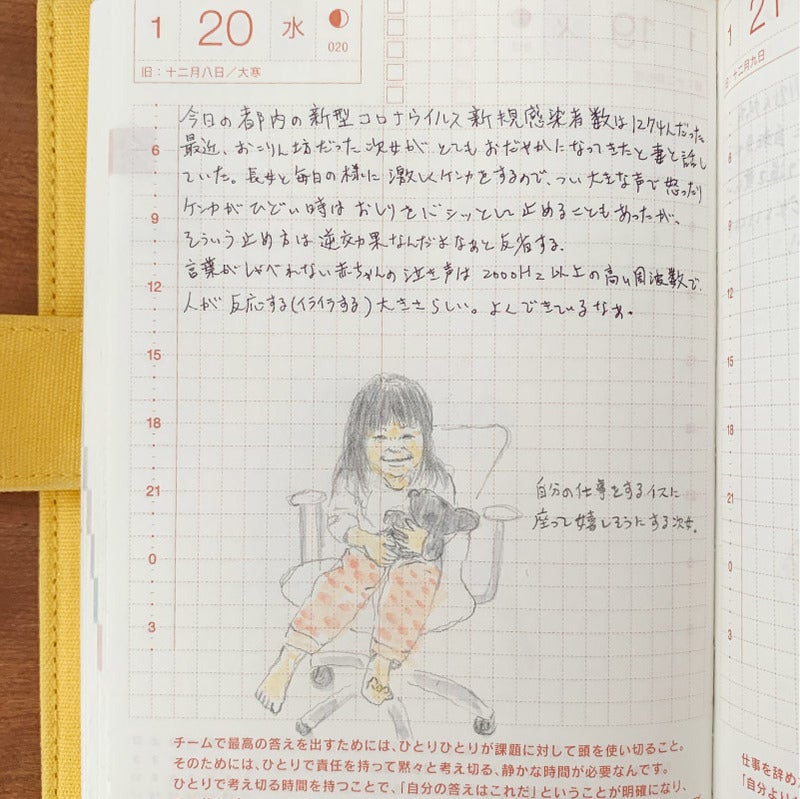 1 20 水
020
旧：十二月八日／大寒
今日の都内の新型コロナウイルス新規感染者数は1274人だった
最近、おこりん坊だった次女が、とてもおだやかになってきたと妻と話し
ていた。長女と毎日の様に激しくケンカをするので、つい大きな声で怒ったり
ケンカがひどい時はおしりをバシッとして止めることもあったが、
そういう止め方は逆効果なんだよなぁと反省する。
言葉がしゃべれない赤ちゃんの泣き声は2000Hz以上の高い周波数で、
人が反応する(イライラする)大きさらしい。よくできているなぁ。
6
9
12
15
18
21
0
3
自分の仕事をするイスに
座って嬉しそうにする次女。
チームで最高の答えを出すためには、ひとりひとりが課題に対して頭を使い切ること。
そのためには、ひとりで責任を持って黙々と考え切る、静かな時間が必要なんです。
ひとりで考え切る時間を持つことで、「自分の答えはこれだ」ということが明確になり、
1 21
旧：十二月九日
6
9
12
15
18
21
0
3
仕事を辞め
「自分より